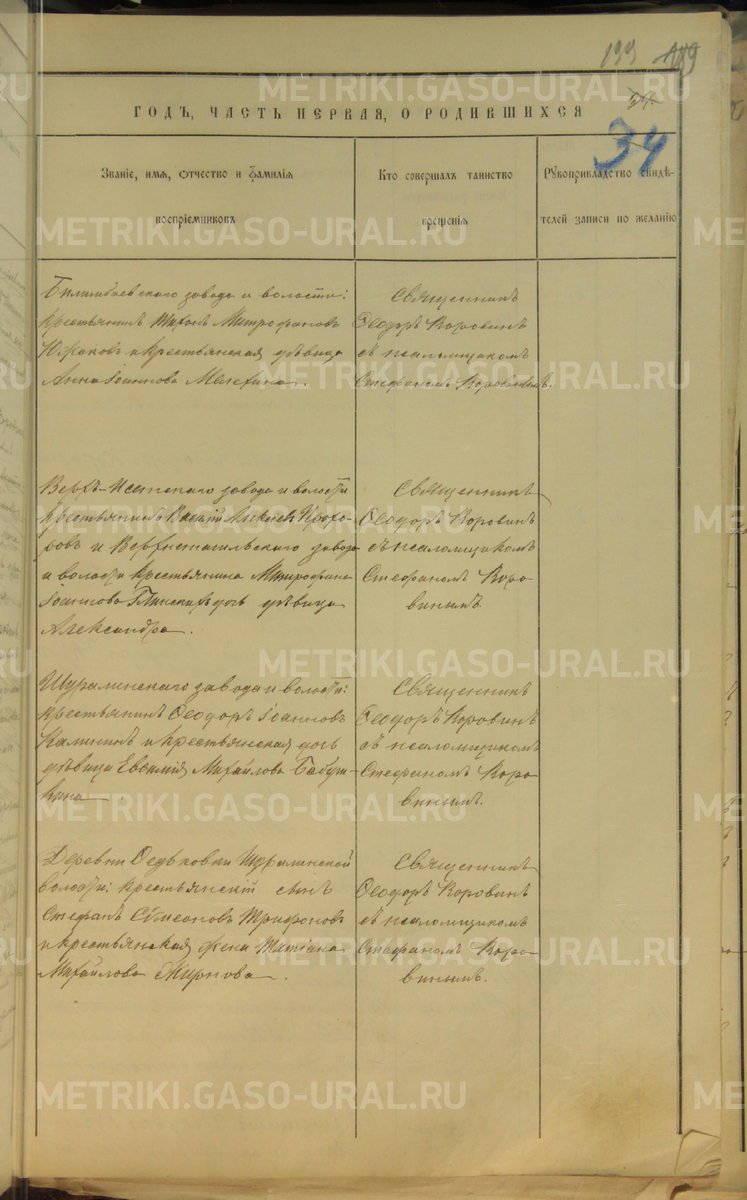 199 189
ГОДЪ, ЧАСТЬ ПЕРВАЯ, О РОДИВШИХСЯ
34
Званіе, имя, отчество и фамилія
воспріемниковъ
Кто совершалъ таинство
крещенія
Рукоприкладство свидѣ-
телей записи по желанію
Билимбаевскаго завода и волости:
крестьянинъ Митрофановъ
Южаковъ и крестьянская дѣвица
Анна Іоаннова Мелехина.
Священникъ
Ѳеодоръ Коровинъ
съ псаломщикомъ
Стефаномъ Коровинымъ.
Верхъ-Исетскаго завода и волости
крестьянинъ Прохо-
ровъ и Верхнетагильскаго завода
и волости крестьянина Митрофана
Іоаннова дочь дѣвица
Александра.
Священникъ
Ѳеодоръ Коровинъ
съ псаломщикомъ
Стефаномъ Коро-
винымъ
Шуралинскаго завода и волости:
крестьянинъ Ѳеодоръ Іоанновъ
Калининъ и крестьянская дочь
дѣвица Евѳимія Михайлова Бабуш-
кина.
Священникъ
Ѳеодоръ Коровинъ
съ псаломщикомъ
Стефаномъ Коро-
винымъ.
Деревни Ѳедьковки Шуралинской
волости: крестьянскій сынъ
Стефанъ Сѵмеоновъ Трифоновъ
и крестьянская жена Татіана
Михайлова Смирнова.
Священникъ
Ѳеодоръ Коровинъ
съ псаломщикомъ
Стефаномъ Коро-
винымъ.
METRIKI.GASO-URAL.RU
METRIKI.GASO-URAL.RU
METRIKI.GASO-URAL.RU
METRIKI.GASO-URAL.RU
METRIKI.GASO-URAL.RU
METRIKI.GASO-URAL.RU
METRIKI.GASO-URAL.RU
METRIKI.GASO-URAL.RU